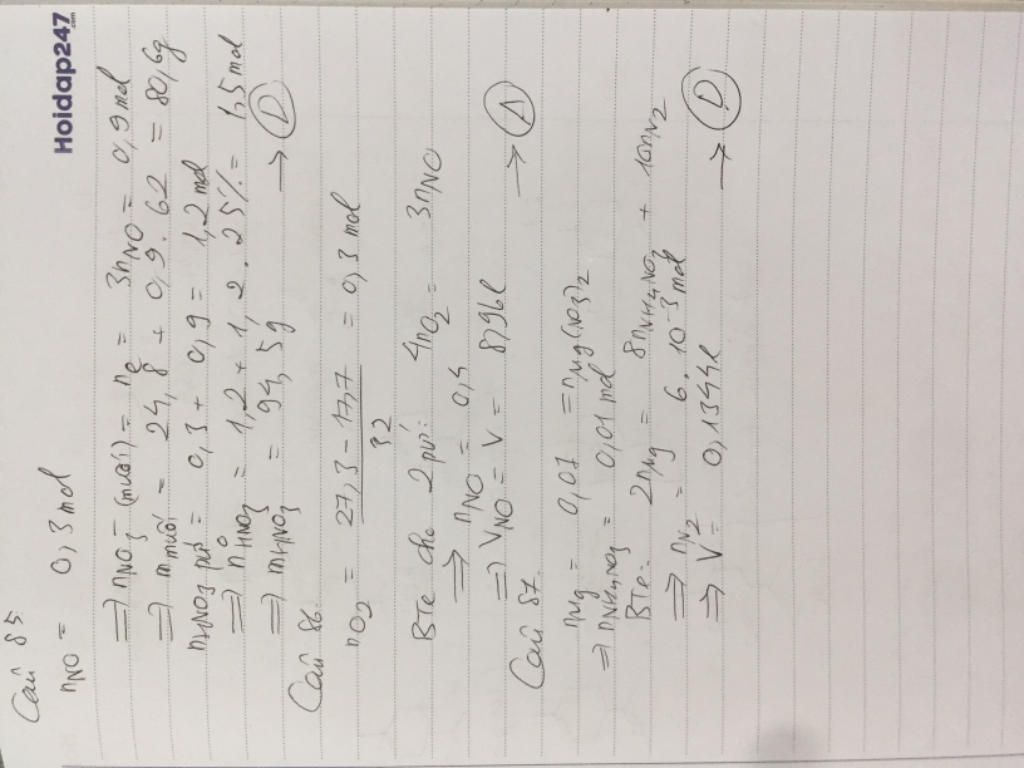 Hoidap247
.com
Câu 85
nNO = 0,3 mol
⇒ nNO3- (muối) = ne = 3nNO = 0,9 mol
⇒ m muối = 24,8 + 0,9.62 = 80,6g
nHNO3 pứ = 0,3 + 0,9 = 1,2 mol
⇒ nHNO3 = 1,2 + 1,2.25% = 1,5 mol
⇒ mHNO3 = 94,5g → D
Câu 86.
nO2 = 27,3 - 17,7 / 32 = 0,3 mol
BTe cho 2 pứ: 4nO2 = 3nNO
⇒ nNO = 0,4
⇒ VNO = V = 8,96l → A
Câu 87.
nMg = 0,07 = nMg(NO3)2
⇒ nNH4NO3 = 0,01 mol
BTe: 2nMg = 8nNH4NO3 + 10nN2
⇒ nN2 = 6.10-3 mol
⇒ V = 0,1344l → D